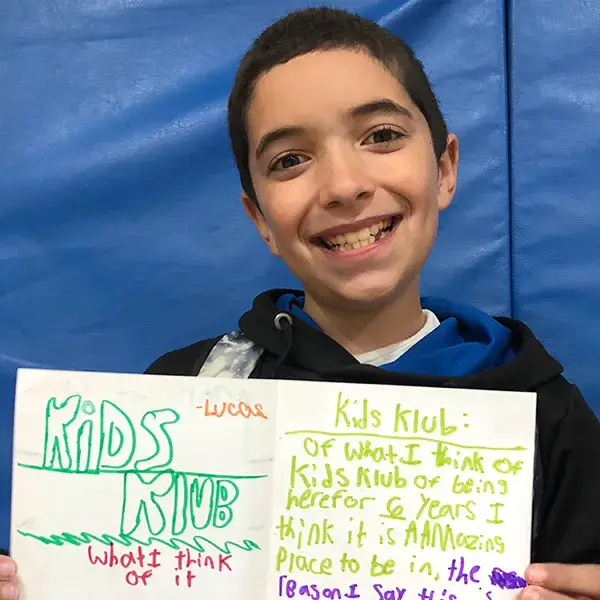 KiDS
KLUB
-Lucas
what I think
of it
Kids Klub:
Of what I think of
Kids Klub of being
herefor 6 Years I
think it is AAMazing
Place to be in, the
reason I say this is